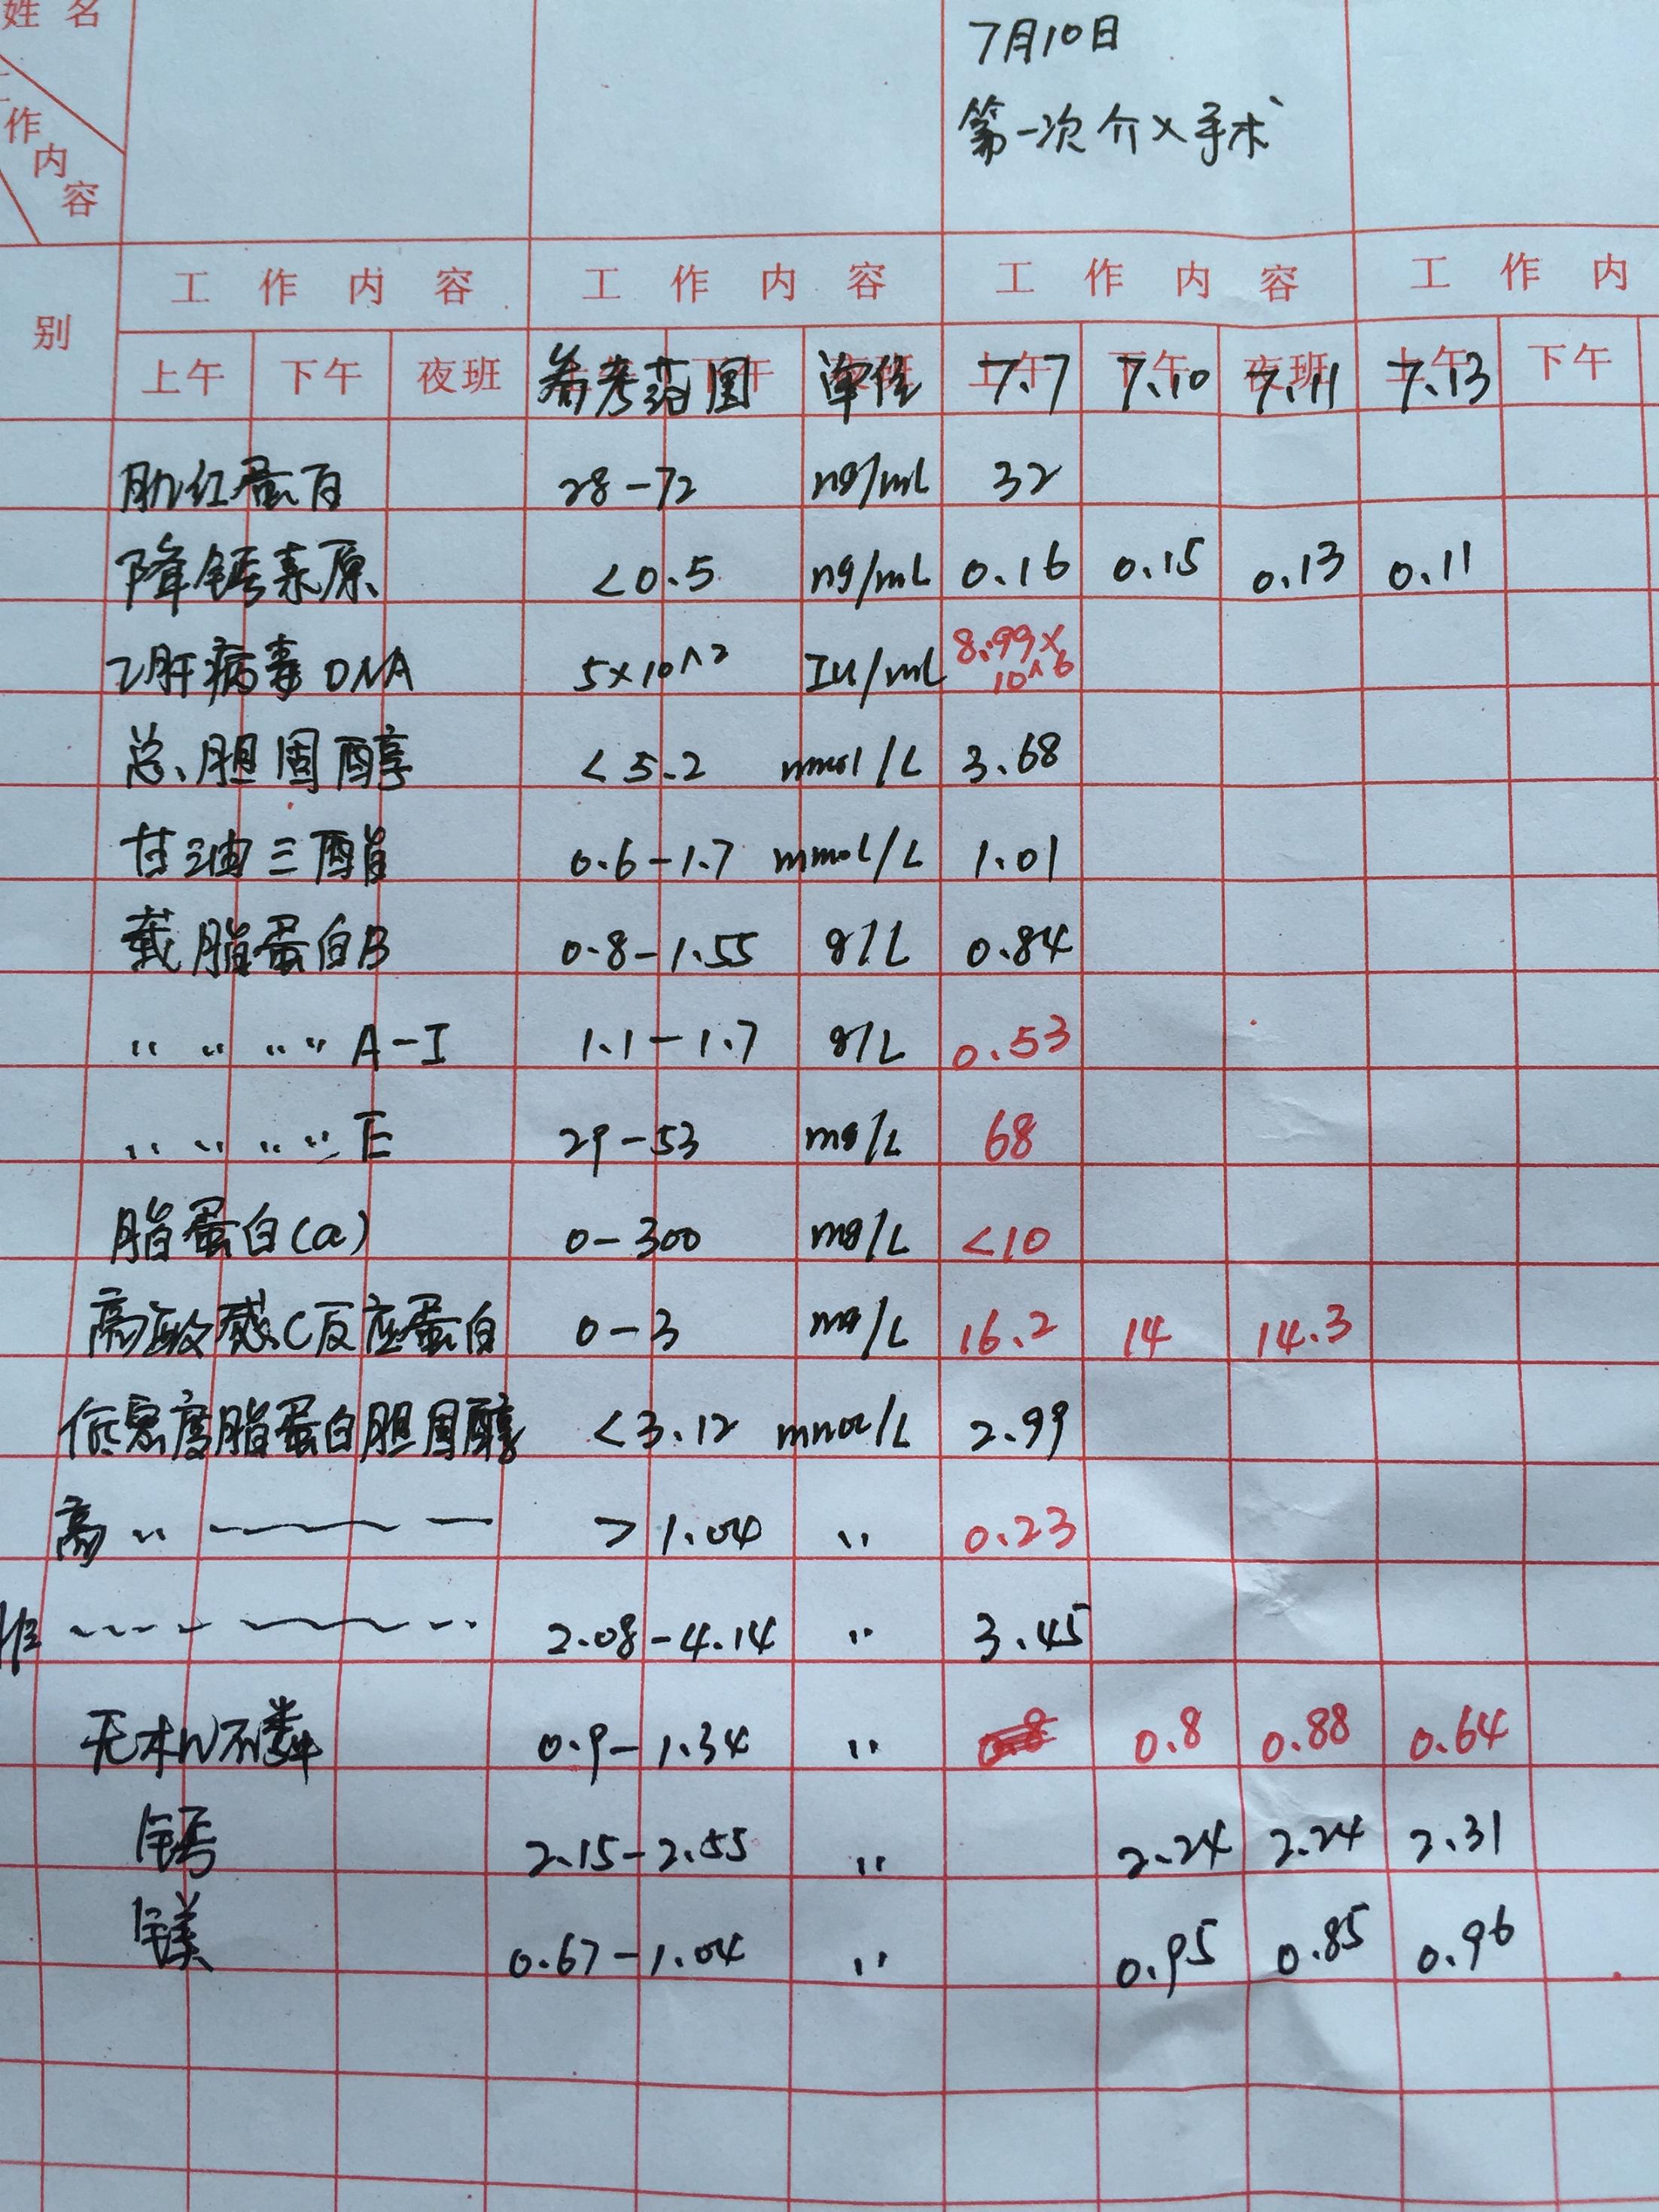 姓 名
7月10日
第一次介入手术
工作内容
别
工作内容 工作内容 工作内容 工作内
上午 下午 夜班 参考范围 单位 7.7 7.10 7.11 7.13 下午
肌红蛋白 28-72 ng/mL 32
降钙素原 <0.5 ng/mL 0.16 0.15 0.13 0.11
乙肝病毒DNA 5×10^2 IU/mL 8.99×10^6
总胆固醇 <5.2 mmol/L 3.68
甘油三酯 0.6-1.7 mmol/L 1.01
载脂蛋白B 0.8-1.55 g/L 0.84
" " " " A-I 1.1-1.7 g/L 0.53
" " " " E 29-53 mg/L 68
脂蛋白(a) 0-300 mg/L <10
高敏感C反应蛋白 0-3 mg/L 16.2 14 14.3
低密度脂蛋白胆固醇 <3.12 mmol/L 2.99
高 " >1.04 " 0.23
2.08-4.14 " 3.45
无机磷 0.9-1.34 " 0.8 0.88 0.64
钙 2.15-2.55 " 2.24 2.24 2.31
镁 0.67-1.04 " 0.95 0.85 0.96